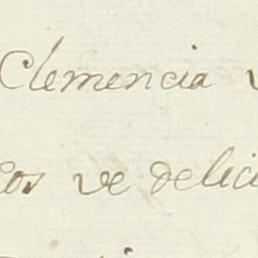 Clemencia
os ve delici